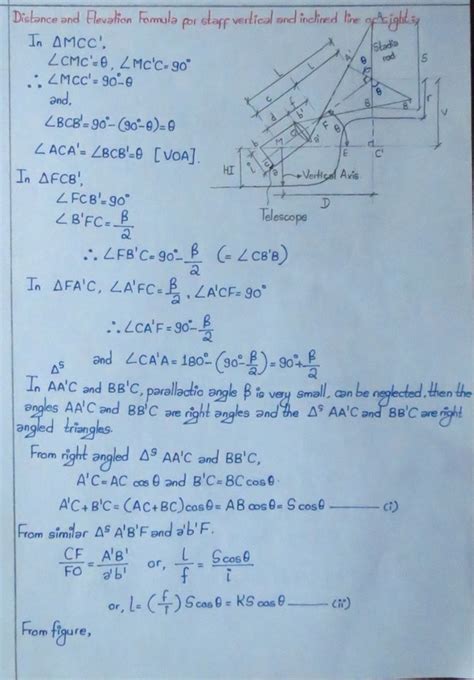 Distance and Elevation Formula for staff vertical and inclined line of sight:
In ΔMCC',
∠CMC'=θ, ∠MC'C=90°
∴ ∠MCC'=90°-θ
and,
∠BCB'=90°-(90°-θ)=θ
∠ACA'=∠BCB'=θ [VOA].
In ΔFCB',
∠FCB'=90°
∠B'FC=β/2
∴ ∠FB'C=90°-β/2 (=∠CB'B)
In ΔFA'C, ∠A'FC=β/2, ∠A'CF=90°
∴ ∠CA'F=90°-β/2
and ∠CA'A=180°-(90°-β/2)=90°+β/2
In Δˢ AA'C and BB'C, parallactic angle β is very small, can be neglected, then the
angles AA'C and BB'C are right angles and the Δˢ AA'C and BB'C are right
angled triangles.
From right angled Δˢ AA'C and BB'C,
A'C=AC cosθ and B'C=BC cosθ.
A'C+B'C=(AC+BC)cosθ=AB cosθ=S cosθ ——— (i)
From similar Δˢ A'B'F and a'b'F.
CF/FO=A'B'/a'b' or, L/f=S cosθ/i
or, L=(f/i)S cosθ=KS cosθ ——— (ii)
From figure,
A
Stadia
rod
S
A'
L
L
c
d
f
θ
r
V
B
B'
M
HI
E
C'
Vertical Axis
D
Telescope